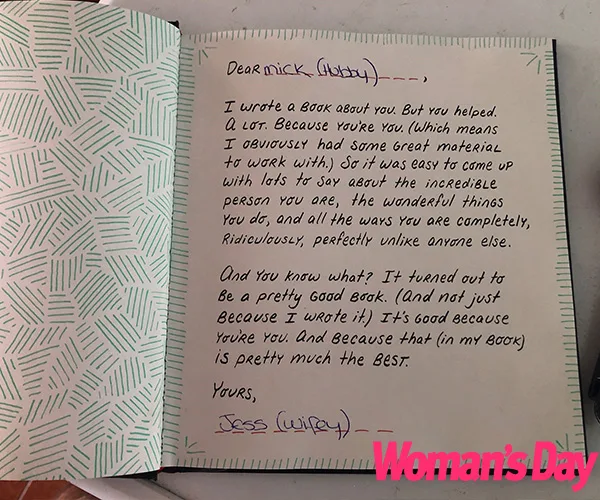 Dear Mick (Hubby),
I wrote a book about you. But you helped.
A lot. Because you're you. (Which means
I obviously had some great material
to work with.) So it was easy to come up
with lots to say about the incredible
person you are, the wonderful things
you do, and all the ways you are completely,
ridiculously, perfectly unlike anyone else.
And you know what? It turned out to
be a pretty good book. (And not just
because I wrote it.) It's good because
you're you. And because that (in my book)
is pretty much the best.
Yours,
Jess (Wifey)
Woman's Day